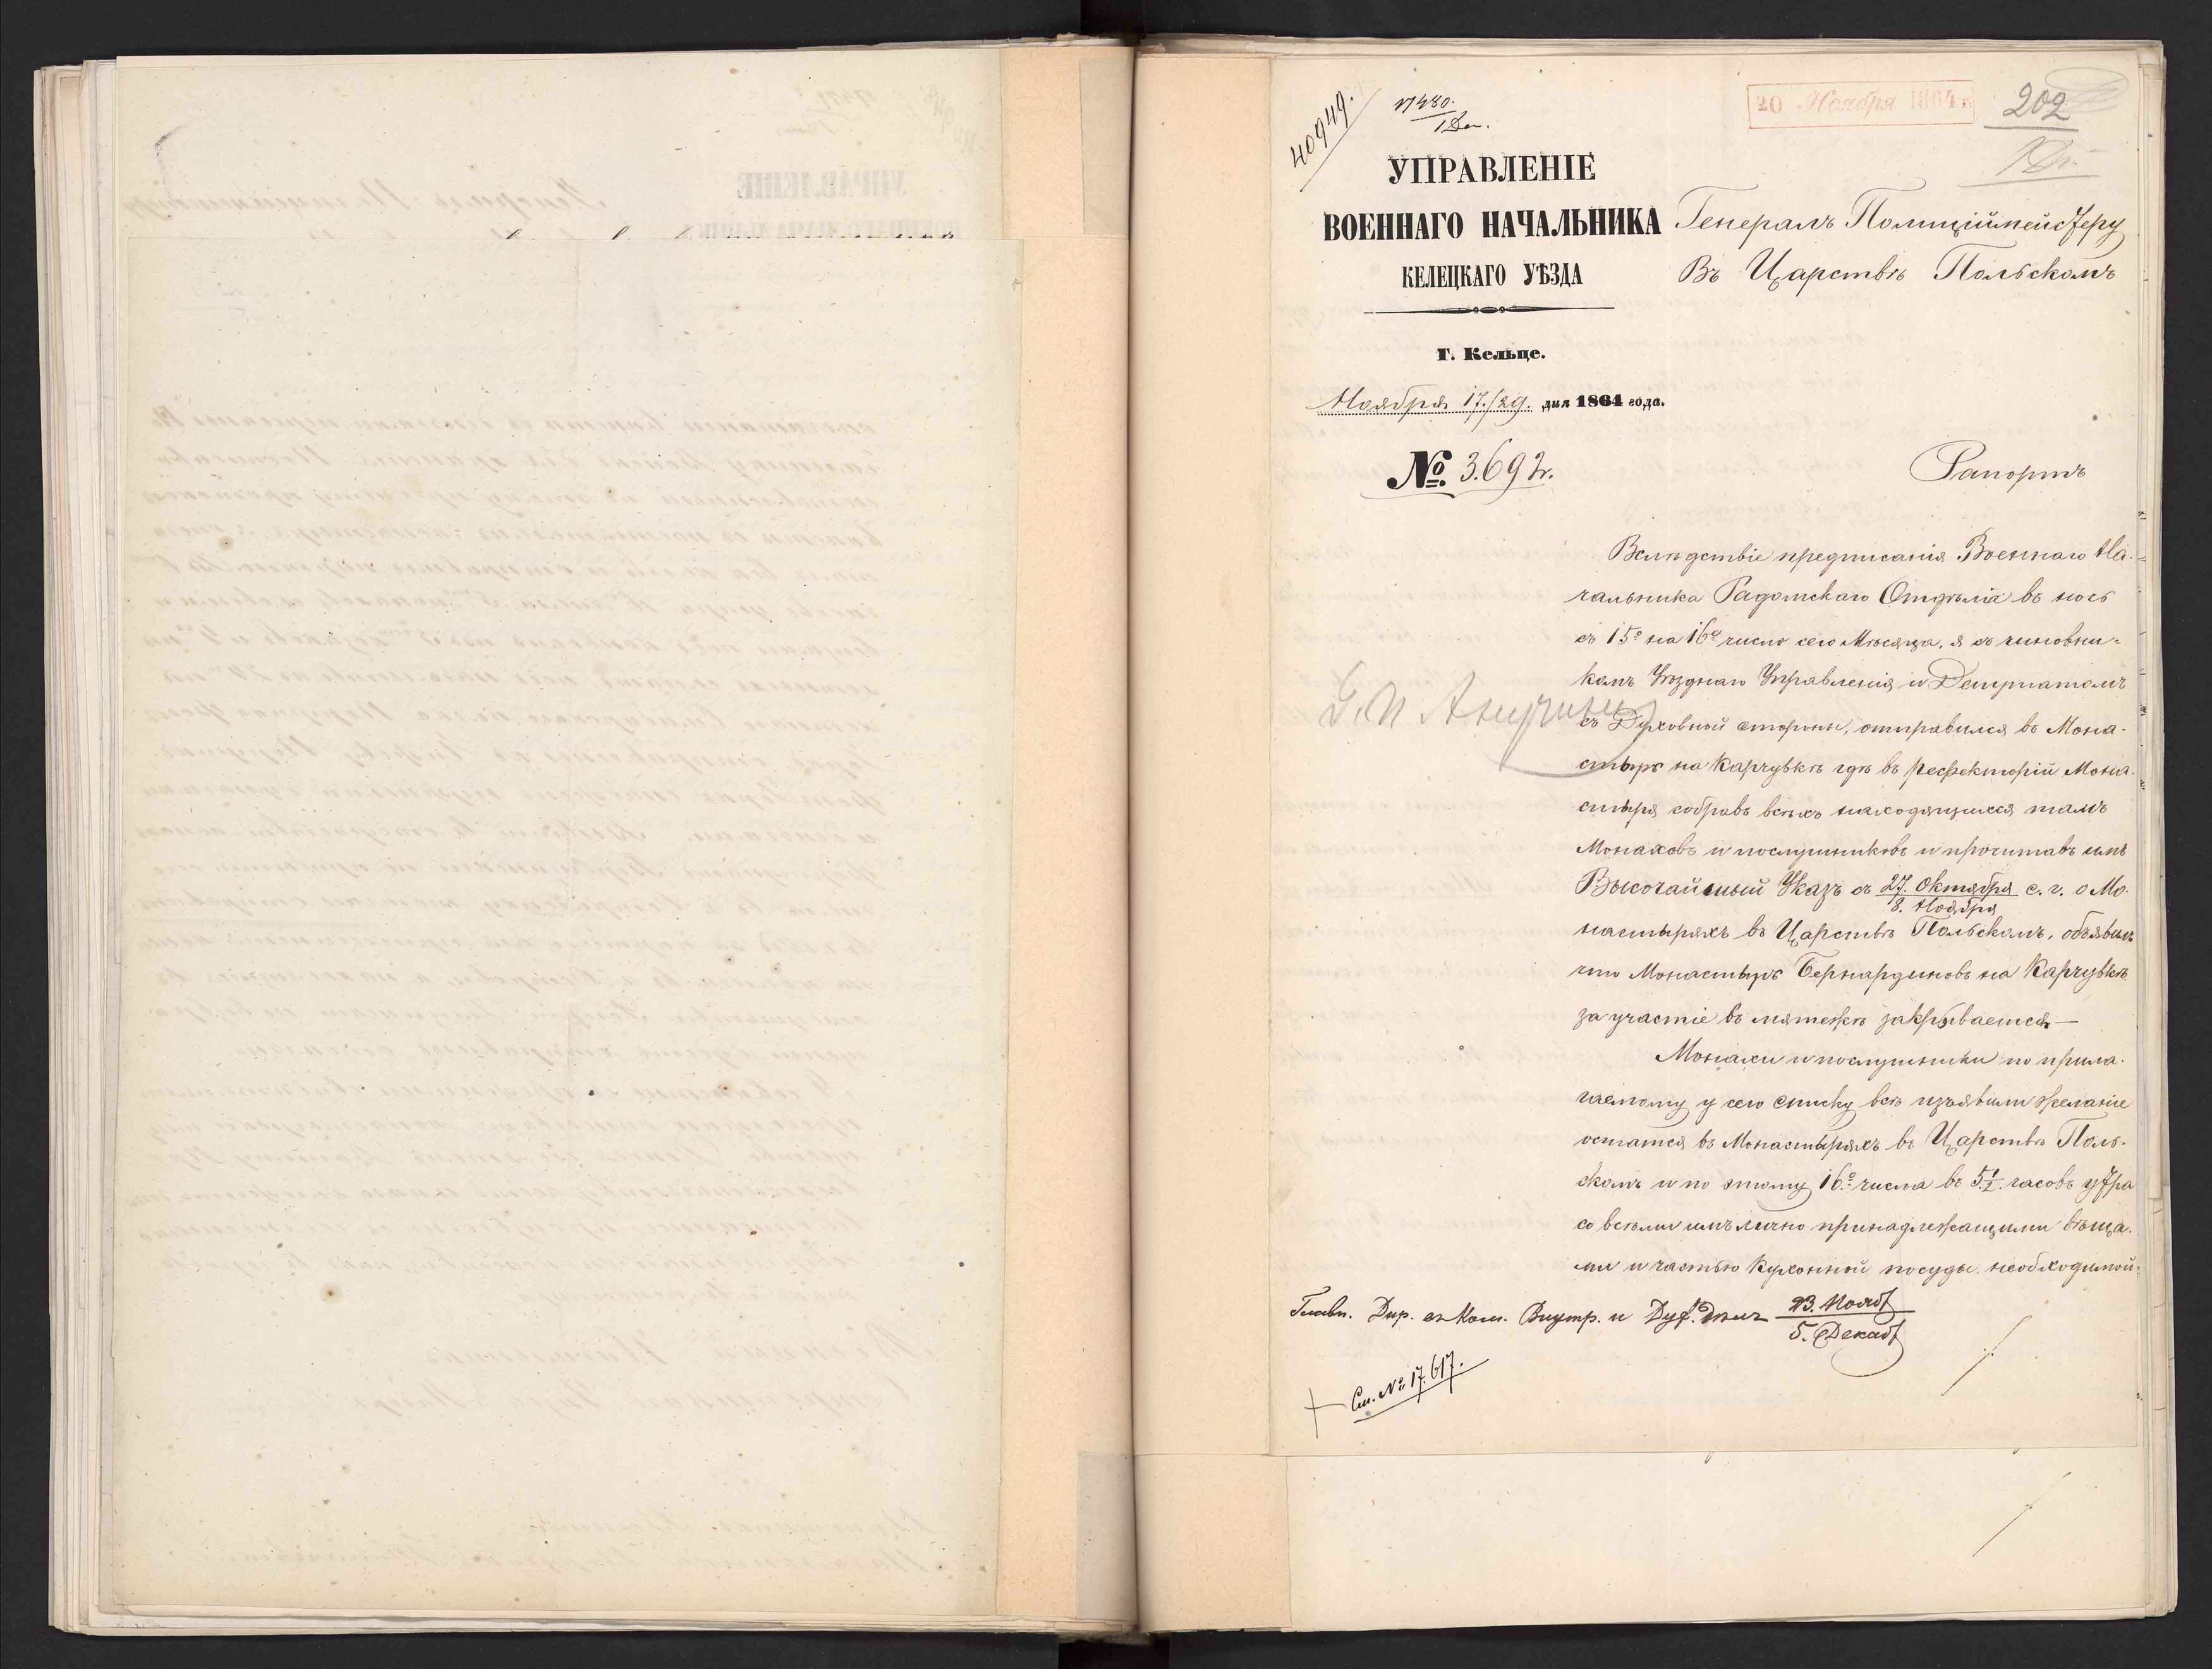 40949.
17480.
1 Дек.
20 Ноября 1864 г.
202
УПРАВЛЕНІЕ
ВОЕННАГО НАЧАЛЬНИКА
КЕЛЕЦКАГО УѢЗДА
Г. Кельце.
Ноября 17./29. дня 1864 года.
№ 3.692.
Генералъ Полиціймейстеру
Въ Царствѣ Польскомъ
Рапортъ
Вслѣдствіе предписанія Военнаго На-
чальника Радомскаго Отдѣла въ ночь
съ 15º на 16º число сего Мѣсяца, я съ чиновни-
комъ Уѣзднаго Управленія и Депутатомъ
съ Духовной стороны, отправился въ Мона-
стырь на Карчувкѣ гдѣ въ рефекторіи Мона-
стыря собравъ всѣхъ находящихся тамъ
Монаховъ и послушниковъ и прочитавъ имъ
Высочайшый Указъ съ 27. Октября / 8. Ноября с. г. о Мо-
настыряхъ въ Царствѣ Польскомъ, объявилъ
что Монастырь Бернардиновъ на Карчувкѣ
за участіе въ мятежѣ закрывается —
Монахи и послушники по прила-
гаемому у сего списку всѣ изъявили желаніе
остатся въ Монастыряхъ въ Царствѣ Поль-
скомъ и по этому 16º числа въ 5½ часовъ утра
со всѣми имъ лично принадлежащими вѣща-
ми и частью кухонной посуды необходимой
Г. П. Анучину
Главн. Дир. въ Ком. Внутр. и Дух. Дѣлъ 23. Нояб / 5. Декаб
См. № 17.617.